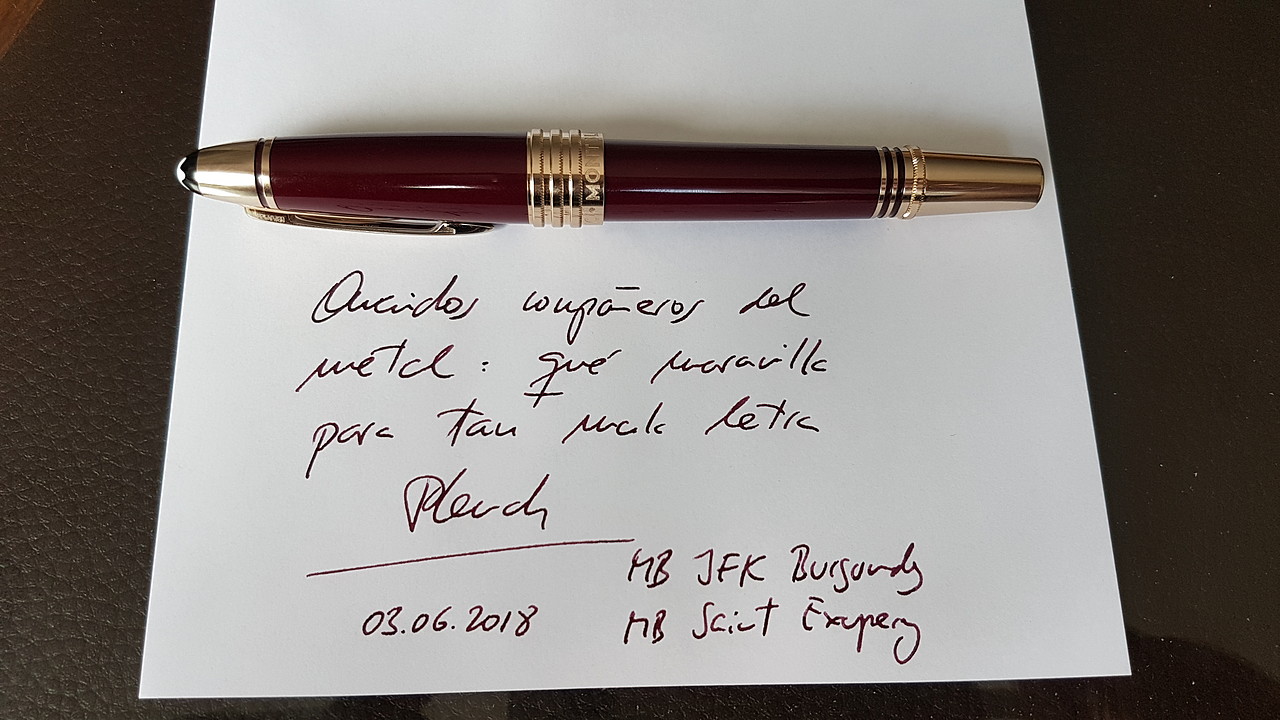 MONT
Queridos compañeros del
metal: qué maravilla
para tan mala letra
03.06.2018
MB JFK Burgundy
MB Saint Exupery